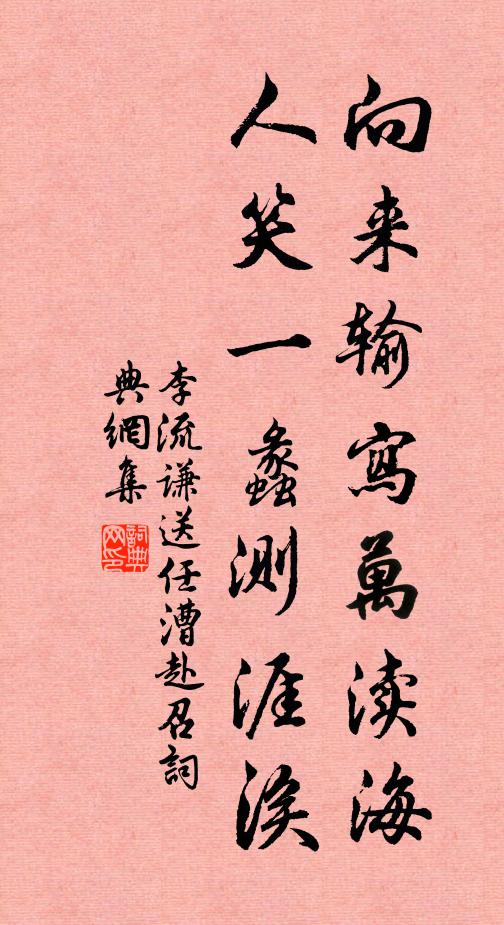 向来输寫萬渎海
人笑一蠡测涯涘
李流谦送任漕赴召詞
典網集
詞典網印